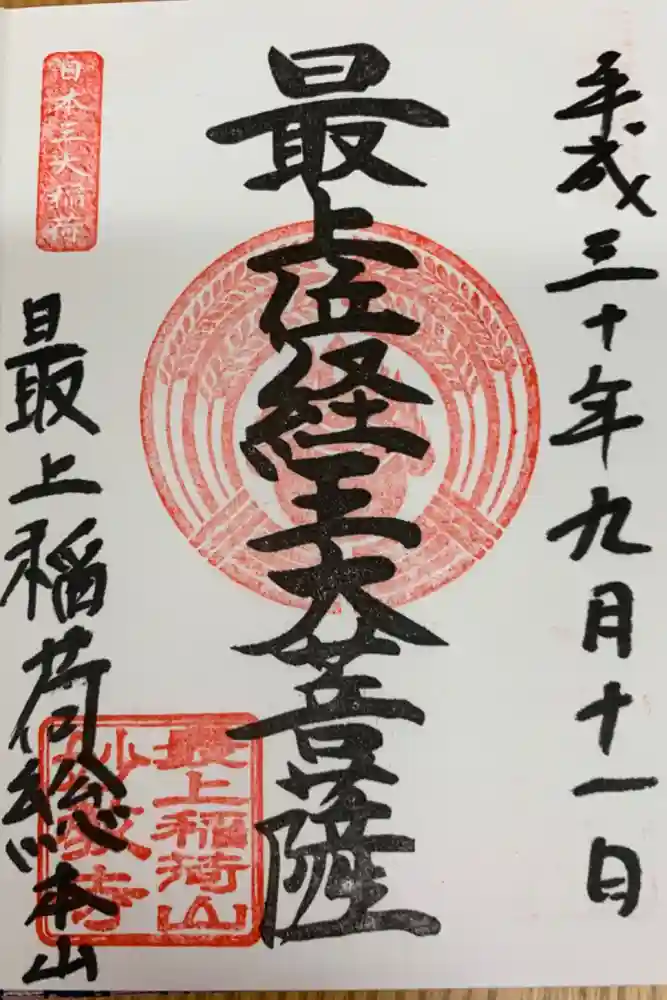 平成三十年九月十一日
最上位経王大菩薩
日本三大稲荷
最上稲荷総本山
最上稲荷山
妙教寺